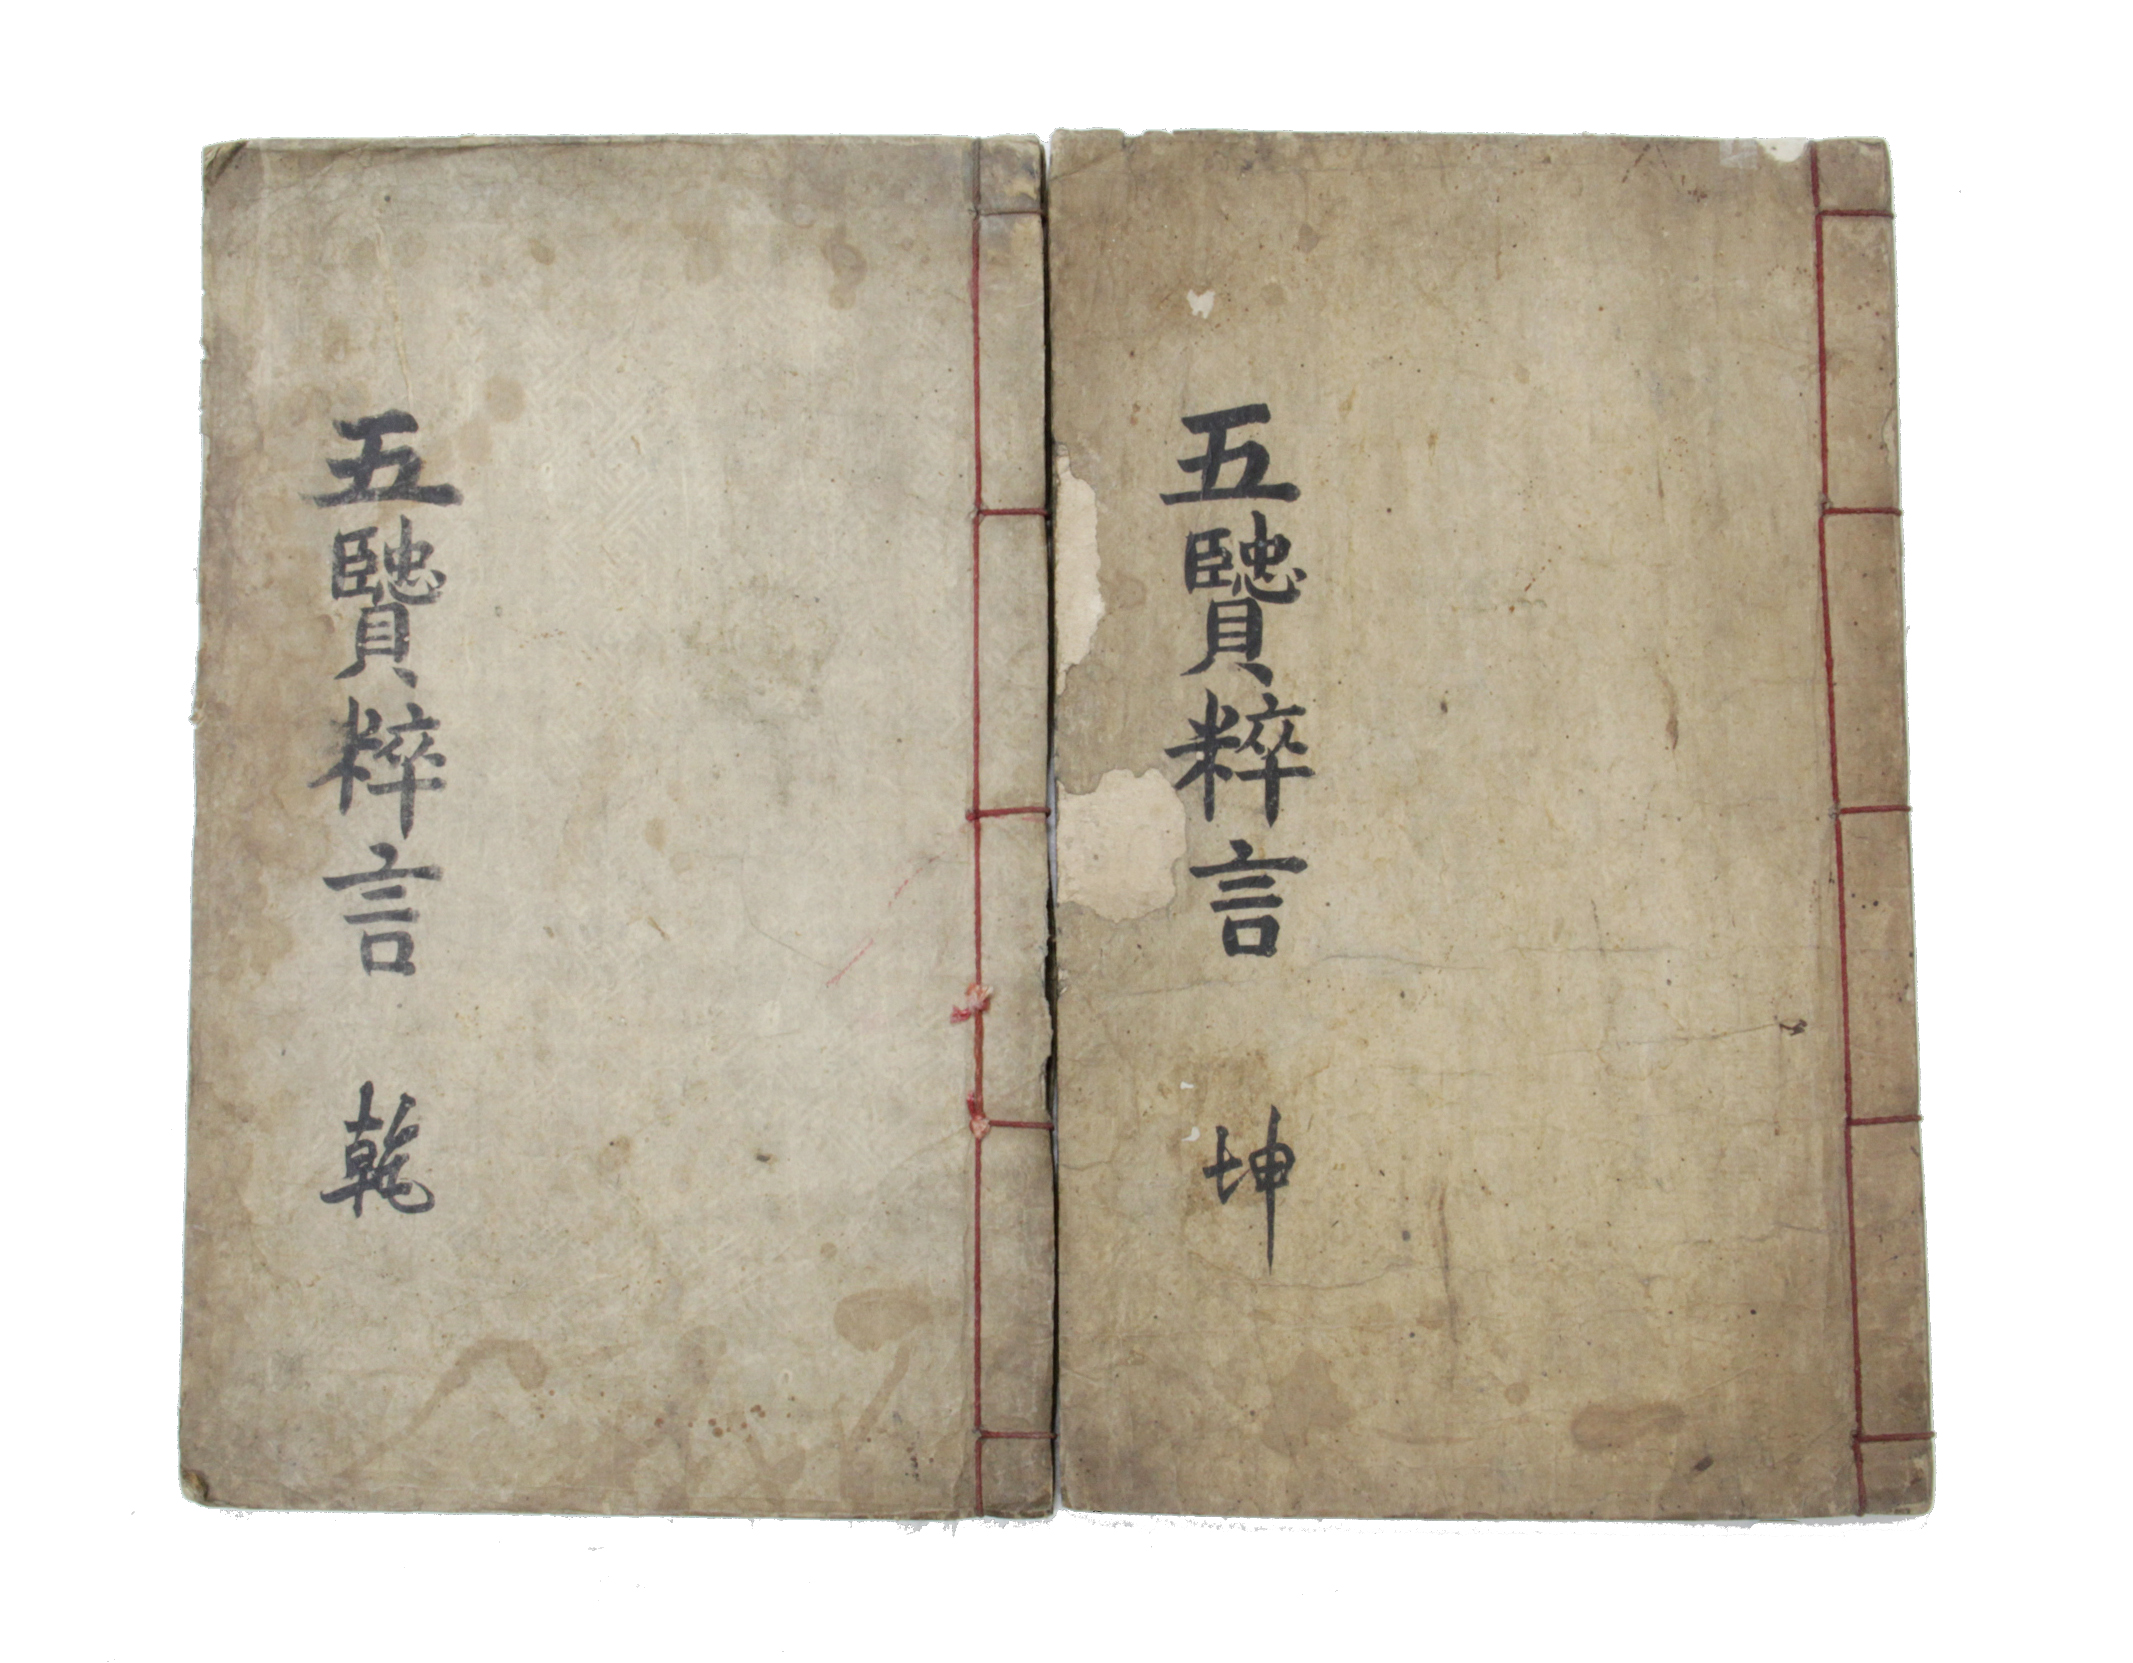 五贒粹言 乾
五贒粹言 坤